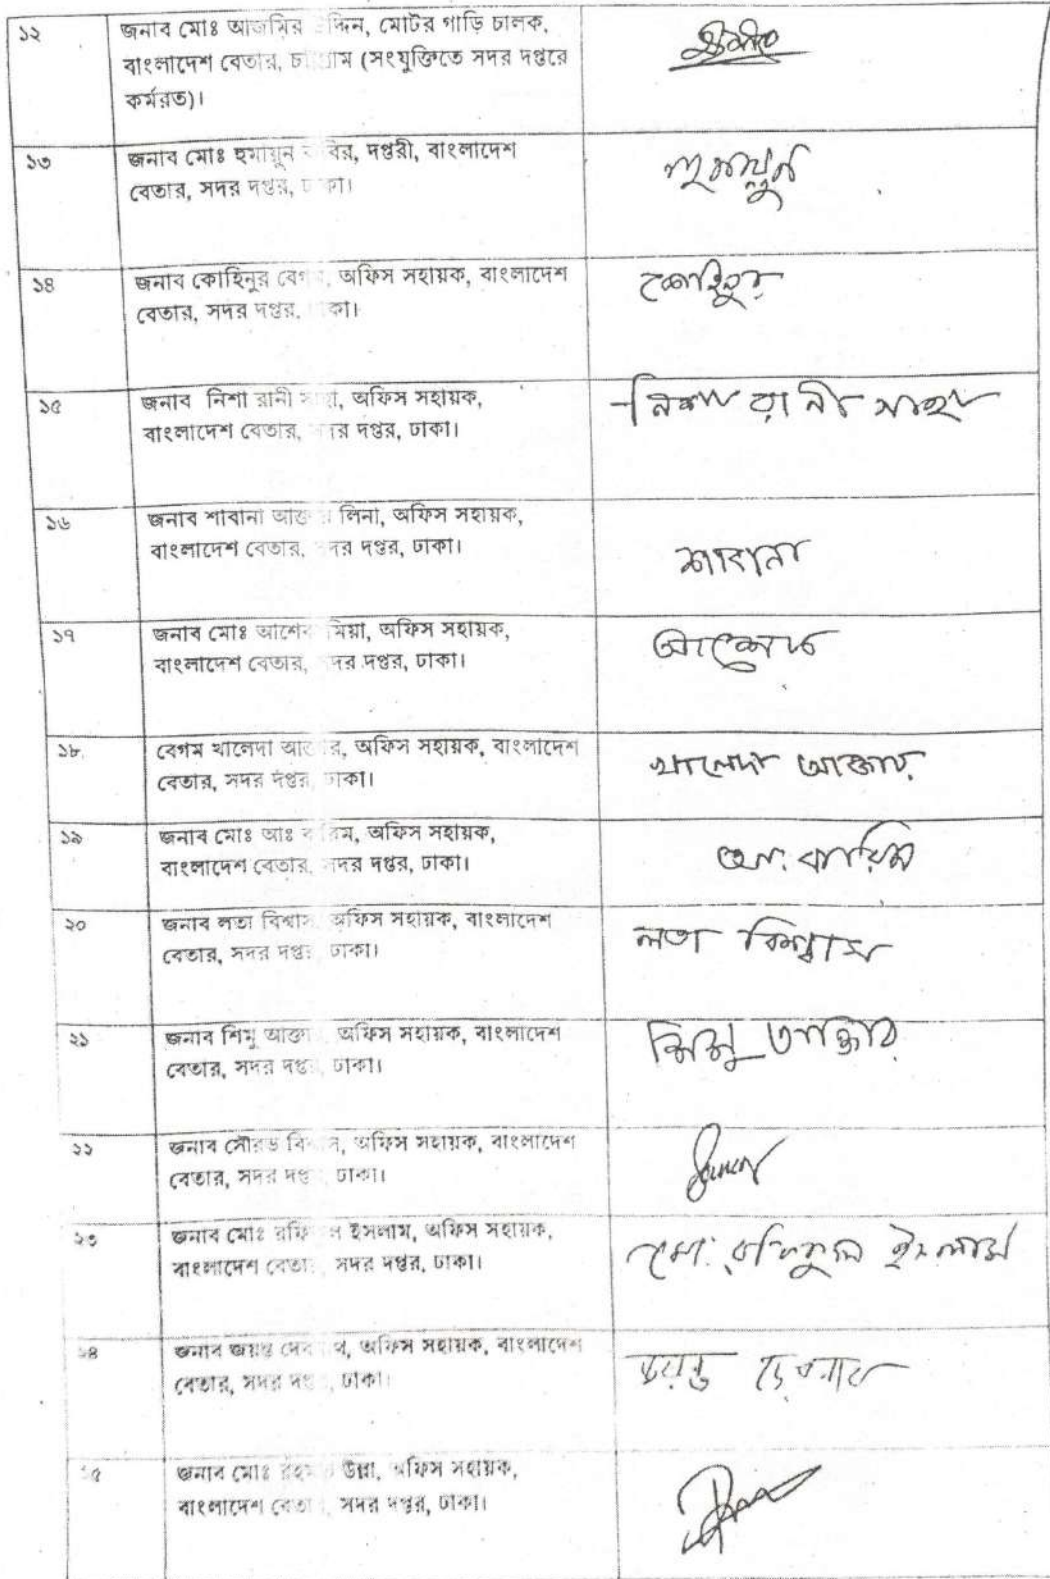 ১২
জনাব মোঃ আজমির উদ্দিন, মোটর গাড়ি চালক,
বাংলাদেশ বেতার, চট্টগ্রাম (সংযুক্তিতে সদর দপ্তরে
কর্মরত)।
১৩
জনাব মোঃ হুমায়ুন কবির, দপ্তরী, বাংলাদেশ
বেতার, সদর দপ্তর, ঢাকা।
হুমায়ুন
১৪
জনাব কোহিনুর বেগম, অফিস সহায়ক, বাংলাদেশ
বেতার, সদর দপ্তর, ঢাকা।
কোহিনুর
১৫
জনাব নিশা রানী সাহা, অফিস সহায়ক,
বাংলাদেশ বেতার, সদর দপ্তর, ঢাকা।
নিশা রানী সাহা
১৬
জনাব শাবানা আক্তার লিনা, অফিস সহায়ক,
বাংলাদেশ বেতার, সদর দপ্তর, ঢাকা।
শাবানা
১৭
জনাব মোঃ আশেক মিয়া, অফিস সহায়ক,
বাংলাদেশ বেতার, সদর দপ্তর, ঢাকা।
আশেক
১৮
বেগম খালেদা আক্তার, অফিস সহায়ক, বাংলাদেশ
বেতার, সদর দপ্তর, ঢাকা।
খালেদা আক্তার
১৯
জনাব মোঃ আঃ করিম, অফিস সহায়ক,
বাংলাদেশ বেতার, সদর দপ্তর, ঢাকা।
২০
জনাব লতা বিশ্বাস, অফিস সহায়ক, বাংলাদেশ
বেতার, সদর দপ্তর, ঢাকা।
লতা বিশ্বাস
২১
জনাব শিমু আক্তার, অফিস সহায়ক, বাংলাদেশ
বেতার, সদর দপ্তর, ঢাকা।
শিমু আক্তার
২২
জনাব সৌরভ বিশ্বাস, অফিস সহায়ক, বাংলাদেশ
বেতার, সদর দপ্তর, ঢাকা।
২৩
জনাব মোঃ রফিকুল ইসলাম, অফিস সহায়ক,
বাংলাদেশ বেতার, সদর দপ্তর, ঢাকা।
মো: রফিকুল ইসলাম
২৪
জনাব জয়ন্ত দেবনাথ, অফিস সহায়ক, বাংলাদেশ
বেতার, সদর দপ্তর, ঢাকা।
জয়ন্ত দেবনাথ
২৫
জনাব মোঃ উল্লা, অফিস সহায়ক,
বাংলাদেশ বেতার, সদর দপ্তর, ঢাকা।